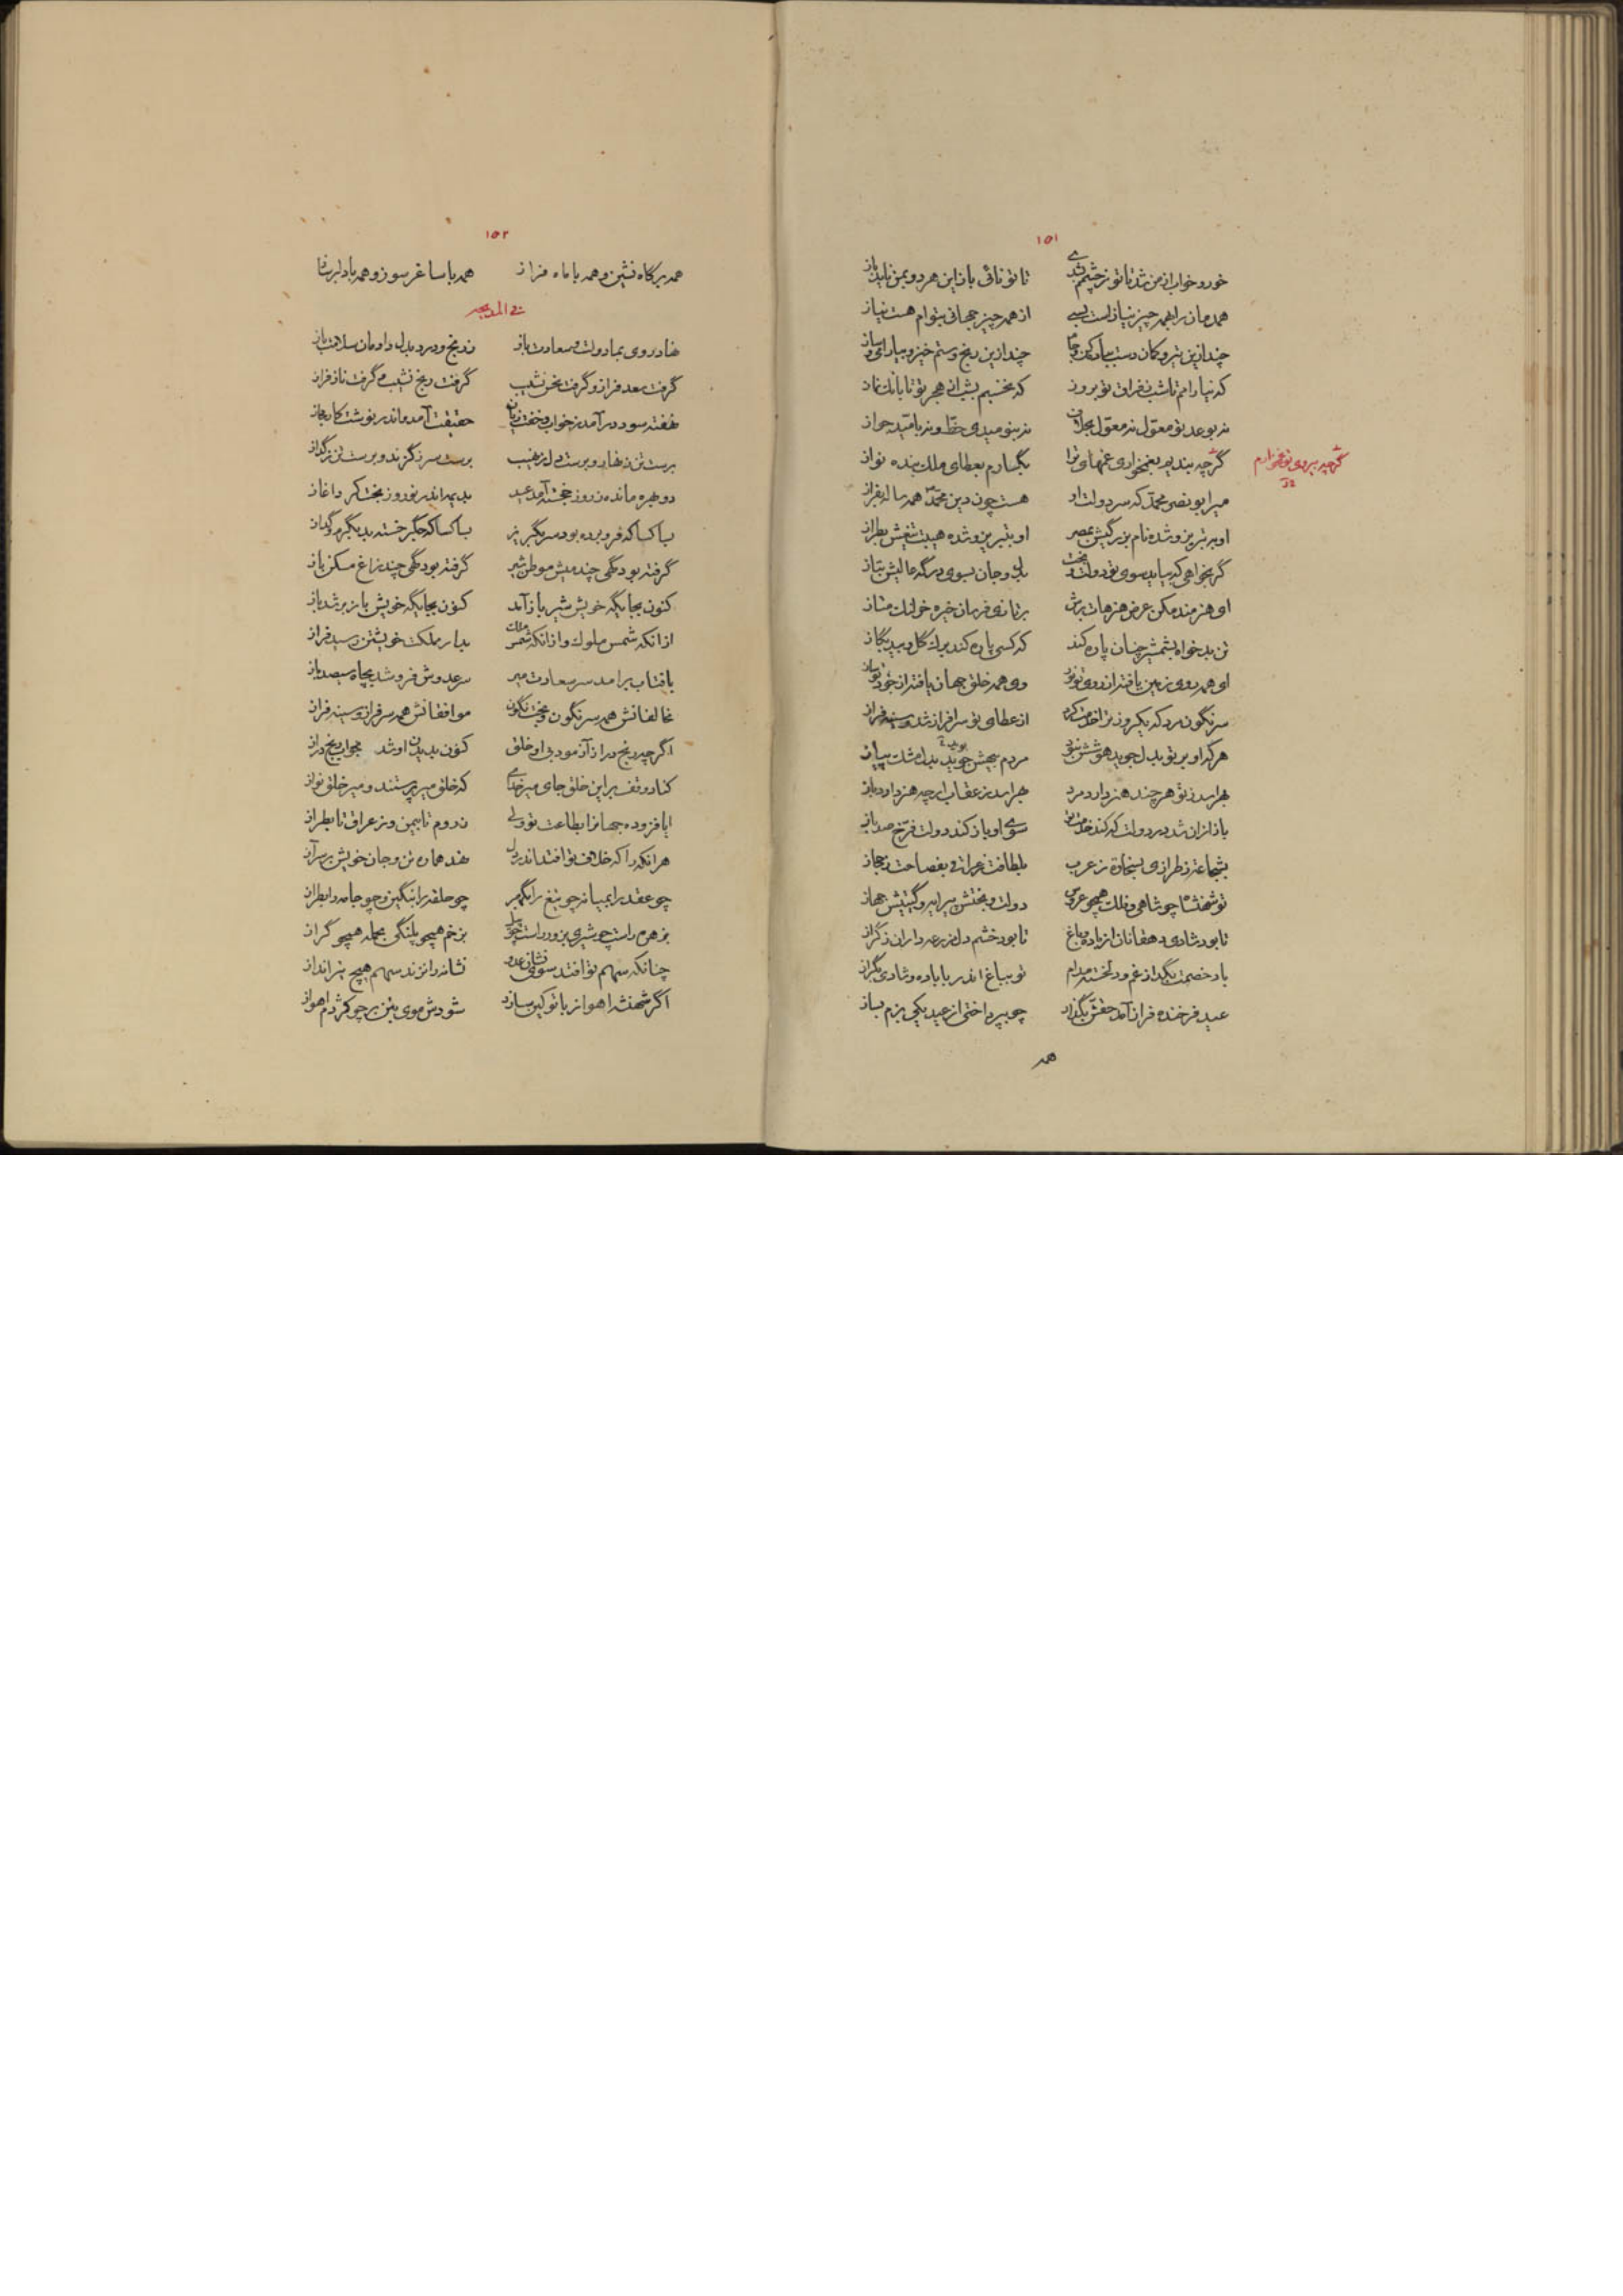 ۱۵۱
خور و خواب از من شد تا تو ز چشمم شدی تا تو نائی باز این هر دو بمن ناید باز
همه مان را بهمه چیز نیاز است بسی از همه چیز جهانی بتوام هست نیاز
چند ازین تیر و کمان دست چند ازین رنج و ستم خیز و بیارای و بساز
که نیارامم تا شب ز فراق تو بروز که نخسبم بشب از هجر تو تا بانگ نماز
نه بوعد تو معول نه معول نه بنومیدی خط و نه بامید جواز
گرچه بندیم بغمخواری غمهای ترا بگسارم بعطای ملک بنده نواز
گرچه بروی تو غمخوارم
میر ابو نصر محمد که سر دولت او هست چون دین محمد همه ساله بفراز
او به تبریز و شده نام بزرگیش بمصر او بتبریز و شده هیبت تیغش بطراز
گر بخواهی که بیاید سوی تو دولت و بخت بدل و جان بسوی درگه عالیش بتاز
ای هنرمند مکن عرض هنرهات برش بر تازی فرمان خیره خولنک متاز
تن بدخواه بشمشیر چنان پاره کند که کسی پاره کند برک گل و بید بگاز
ای همه روی زمین یافته از روی تو وی همه خلق جهان یافته از خود تو ساز
سرنگون مرد که یکروز ترا خدمت کرد از عطای تو سرافراز شد و سینه فراز
هر که او بر تو بدل جوید مردم بیهش جوید بدل مشک پیاز
بهراسد ز تو هر چند هنر دارد مرد بهراسد ز عقاب ارچه هنر دارد باز
باز از آن شد در دولت که کند خدمت تو سوی او باز کند دولت فرخ صد باز
بشجاعت ز طرازی بسخاوة ز عرب بلطافت ز عراقی بفصاحت ز حجاز
تو شهنشاها چو شاهی و فلک همچو عروس دولت و بختش پیرایه و گیتیش جهاز
تا بود شادی دهقانان از باده و باغ تا بود خشم دل مزرعه داران ز گراز
باد خصمت بگداز غم و دلخسته مدام تو بباغ اندر با باده و شادی بگراز
عید فرخنده فراز آمد حقش بگذار چو بپرداختی از عید یکی بزم بساز
همه
۱۵۲
همه بر گاه نشین و همه با ماه فراز همه با ساغر سوز و همه با دلبر ساز
فی المدیحه
نهاد روی بما دولت و سعادت باز ز رنج و درد بدل داد مان سلامت باز
گرفت سعد فراز و گرفت نحس نشیب گرفت رنج نشیب و گرفت ناز فراز
نهفته سود در آمد ز خواب و خفت زیان حقیقت آمد و اندر نوشت کار مجاز
برست تن ز نهار و برست دل ز نهیب برست سر ز گزند و برست تن ز گداز
دو بهره مانده ز روزه خجسته آمد عید بدیمه اندر نوروز بخت کرد آغاز
بسا کسا که فرو برده بود سر بگریز بسا کسا که جگر خسته بد بگرم و گداز
گرفته بود گهی چند میش موطن شیر گرفته بود گهی چند زاغ مسکن باز
کنون بجایگه خویش شیر باز آمد کنون بجایگه خویش باز بر شد باز
از آنکه شمس ملوک و از آنکه شمس ملک بدار مملکت خویشتن رسید فراز
بآفتاب برآمد سر سعادت میر سر عدوش فرو شد بچاه سیصد باز
مخالفانش همه سرنگون و بخت نگون موافقانش همه سرفراز و سینه فراز
اگر چه رنج دراز آزمود بی او خلق کنون بدیدن او شد بجواب رنج دراز
کناد وقف بر این خلق جای میر خدای که خلق میر پرستند و میر خلق نواز
ایا فزوده جهانرا بطاعت تو ولی ز روم تا بیمن وز عراق تا بطراز
هر آنکه را که خلاف تو افتد اندر دل نهد هماره تن و جان خویش بر سر آز
چو عقد را بمیانه چو تیغ را بگهر چو حلقه را بنگین و چو جامه را بطراز
بزهره راست چو شیری بزور راست چو پیل بزخم همچو پلنگی بحمله همچو گراز
چنانکه سهم تو افتد سوی نشان عدو نشانه را نزند سهم هیچ تیر انداز
اگر شهنشه اهواز با تو کین سازد شودش موی بتن بر چو کژدم اهواز